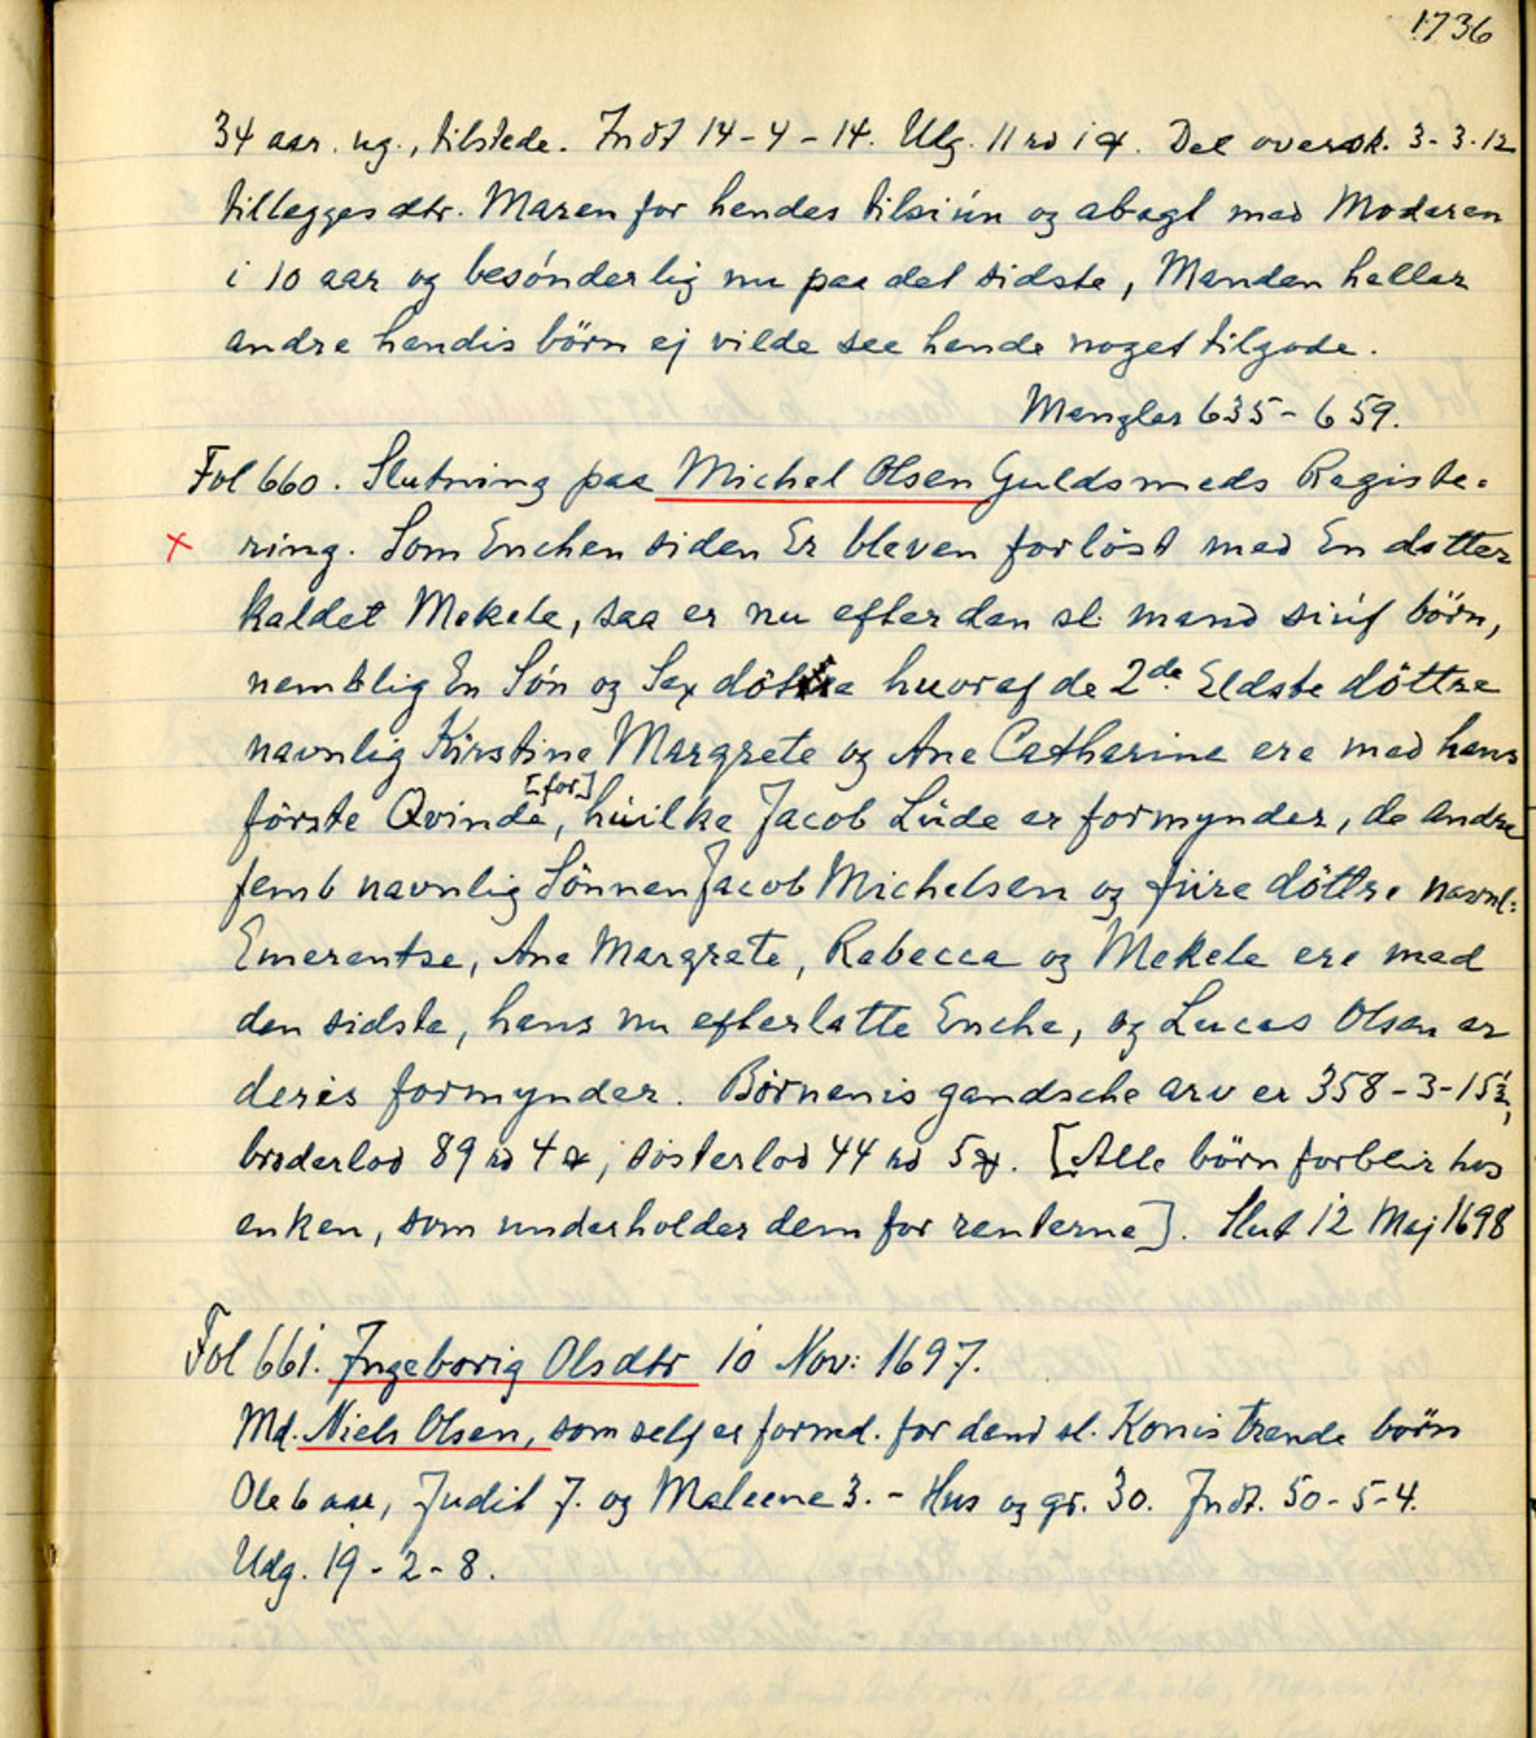 1736
34 aar. ug., tilstede. Indt 14-4-14. Utg. 11 rd 1 ort. Det oversk. 3-3-12
tillegges dtr. Maren for hendes tilsiún og abagt med Moderen
i 10 aar og besónderlig nu paa det sidste, Manden heller
andre hendis börn ej vilde see hende noget tilgode.
Mangler 635-659.
Fol 660. Slutning paa Michel Olsen Guldsmeds Registe-
x ring. Som Enchen siden Er bleven forlöst med En datter
kaldet Mekele, saa er nu efter den sl: mand siúf börn,
nemblig En Són og Sex döttre huoraf de 2de Eldste döttre
navnlig Kirstine Margrete og Ane Catharine ere med hans
förste Qvinde, [for] húilke Jacob Lúde er formynder, de andre
femb navnlig Sönnen Jacob Michelsen og fiire döttre navnl:
Emerentse, Ane Margrete, Rebecca og Mekele ere med
den sidste, hans nu efterlatte Enche, og Lucas Olsen er
deris formynder. Börnenis gandsche arv er 358-3-15½,
broderlod 89 rd 4 ort, sösterlod 44 rd 5 ort. [Alle börn forblir hos
enken, som underholder dem for renterne]. Slut 12 Maj 1698
Fol 661. Ingeborig Olsdtr 10 Nov: 1697.
Md. Niels Olsen, som self er formd. for dend sl. Konis trende börn
Ole 6 aar, Judit 7. og Maleene 3. - Hus og gr. 30. Indt. 50-5-4.
Udg. 19-2-8.